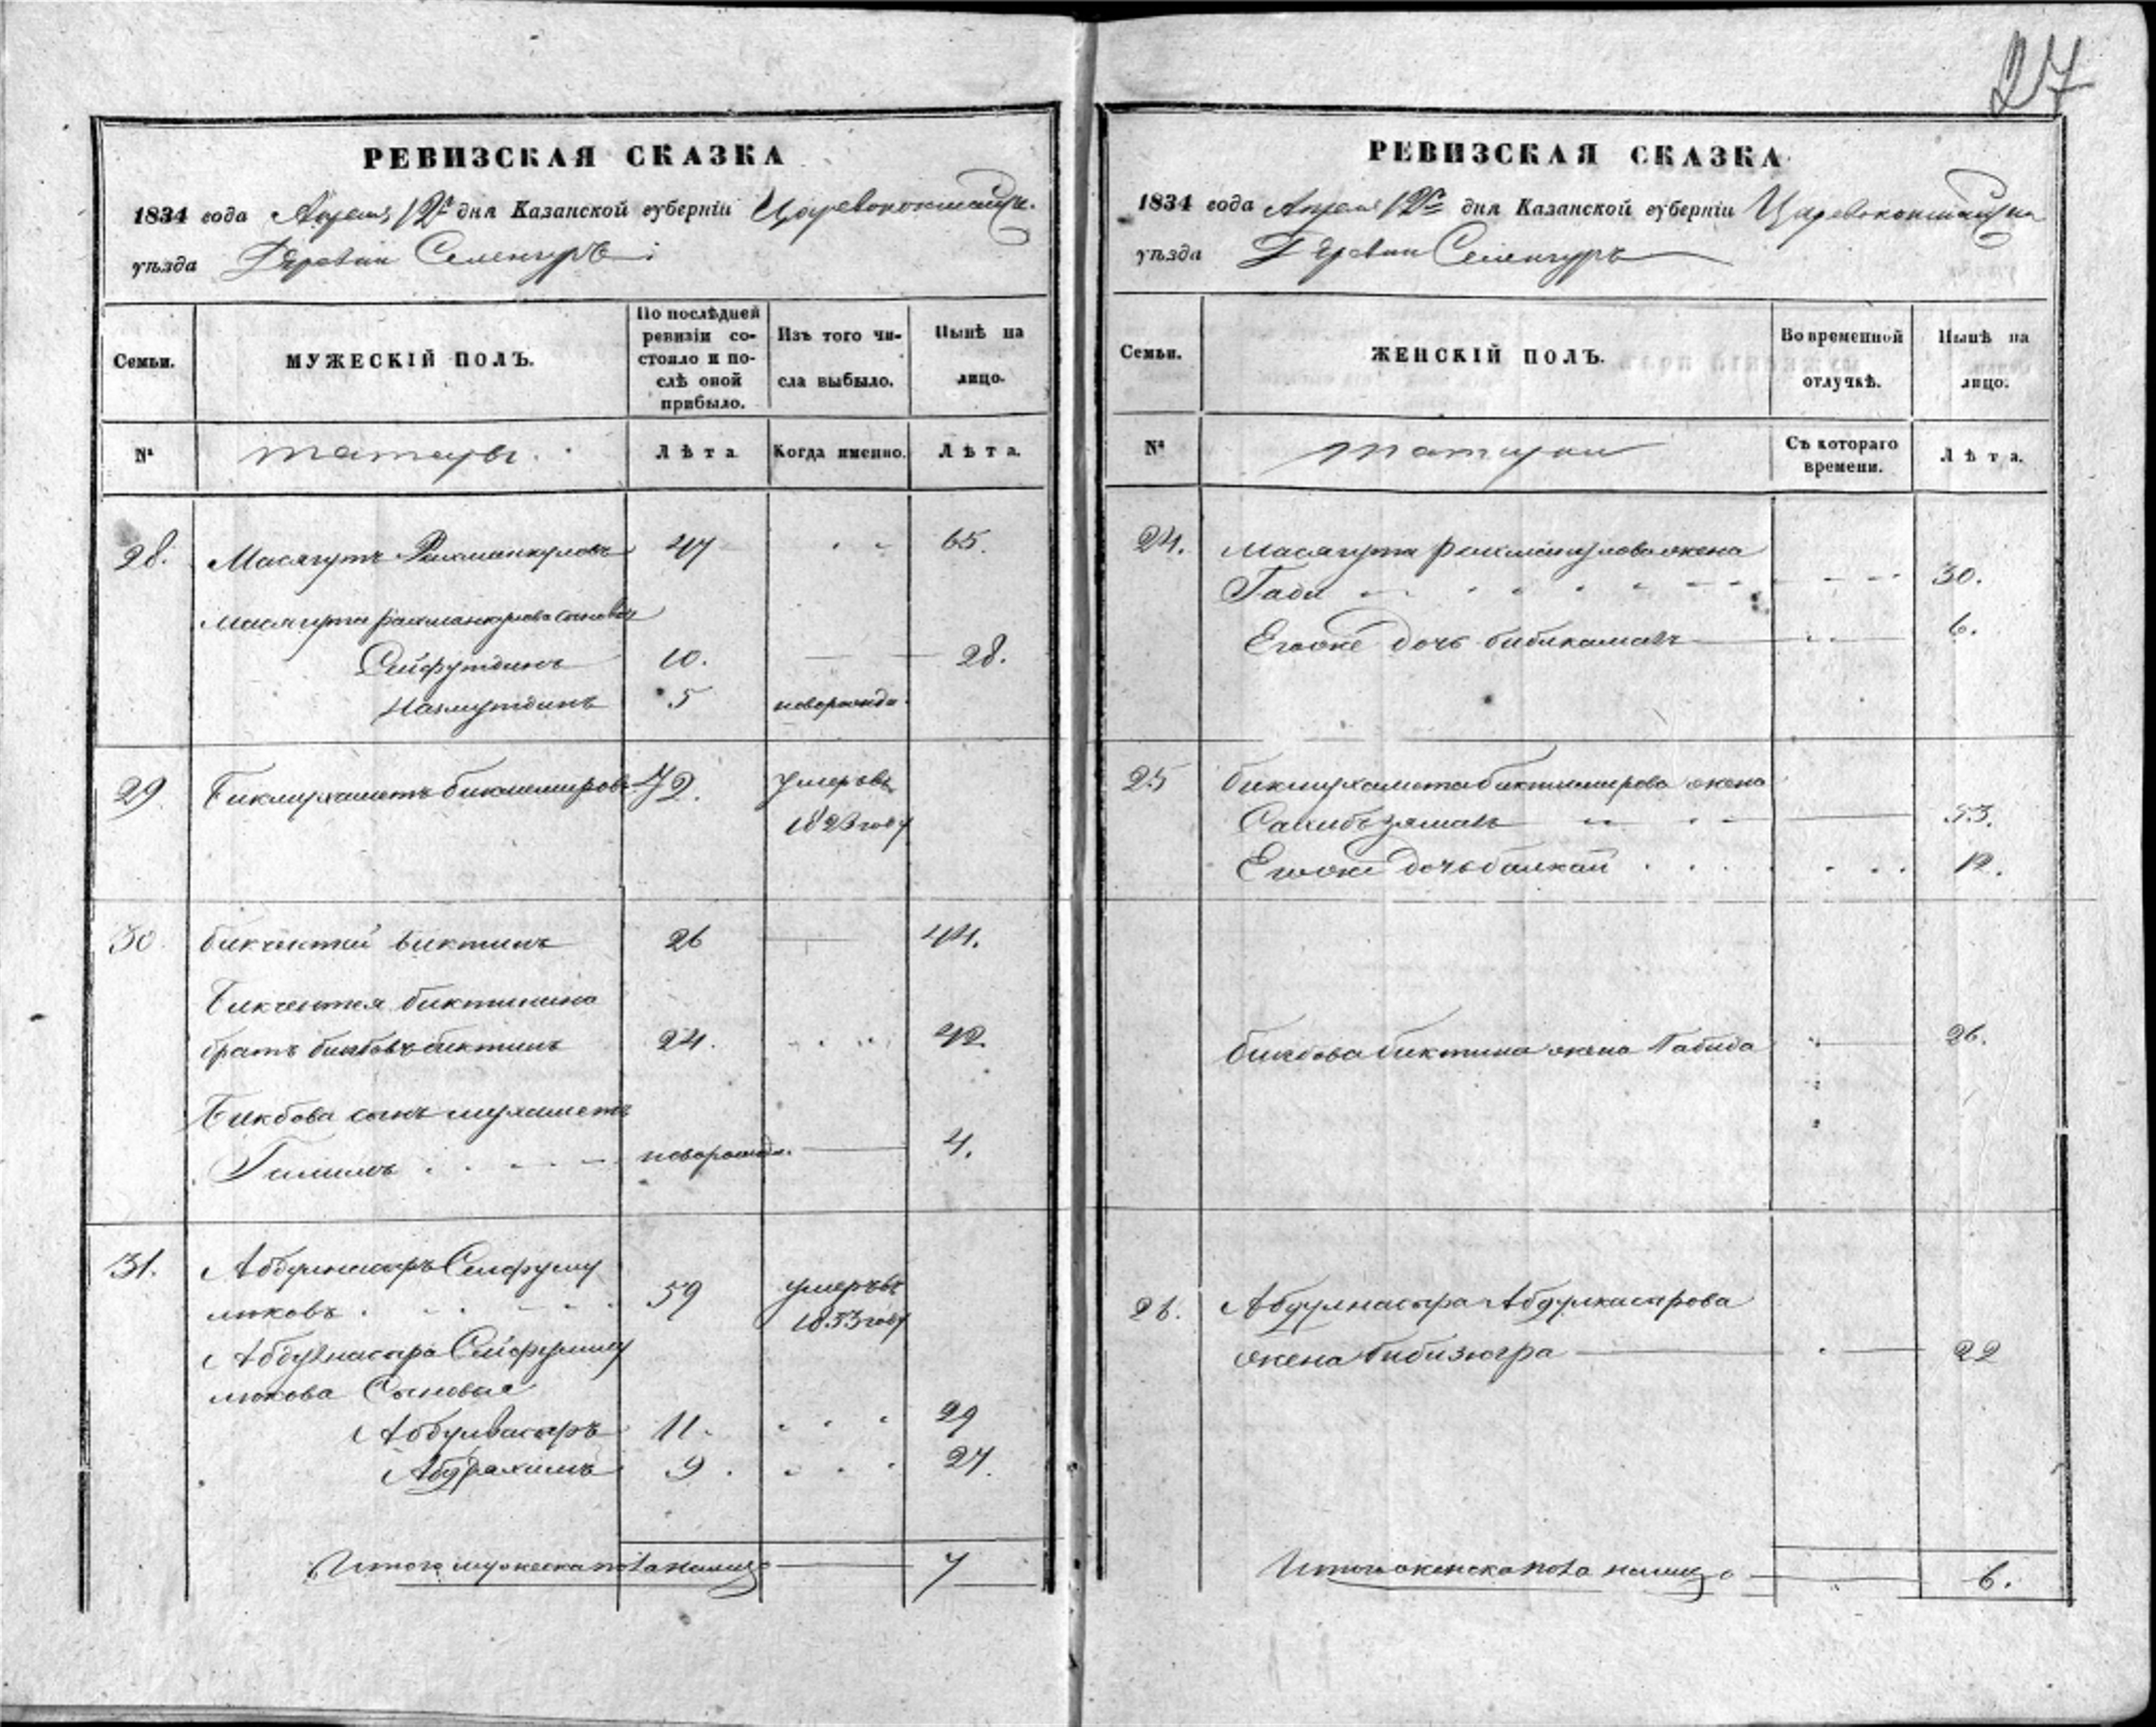 27
РЕВИЗСКАЯ СКАЗКА
1834 года Апреля 12го дня Казанской губерніи Царевококшайск.
уѣзда Деревни Селенгуръ
Семьи.
МУЖЕСКІЙ ПОЛЪ.
По послѣдней ревизіи состояло и послѣ оной прибыло.
Изъ того числа выбыло.
Нынѣ на лицо.
№
татары.
Лѣта
Когда именно.
Лѣта.
28. Масягутъ Рахманкуловъ 47 65.
Масягута рахманкулова сыновья
Сейфутдинъ 10. 28.
Назмутдинъ 5 новорожде.
29. Бикмухаметъ биктемировъ 72. умеръ въ
1823 году
30. бикчентай биктинъ 26 44.
Бикчентея биктинина
братъ бикбовъ биктинъ 24. 42.
Бикбова сынъ мухаметъ
Галимъ новорожде. 4.
31. Абдулнасыръ Сейфуму
люковъ 59 умеръ въ
1833 году
Абдулнасыра Сейфуллму
люкова Сыновья
Абдулвасыръ 11. 29
Абдрахимъ 9. 27.
Итого мужеска пола налицо 7
РЕВИЗСКАЯ СКАЗКА
1834 года Апреля 12го дня Казанской губерніи Царевококшайска
уѣзда Деревни Селенгуръ
Семьи.
ЖЕНСКІЙ ПОЛЪ.
Во временной отлучкѣ.
Нынѣ на лицо.
№
татарки
Съ котораго времени.
Лѣта.
24. Масягута рахманкулова жена
Гади 30.
Егоже дочь бибикамалъ 6.
25 бикмухамета биктимирова жена
Сахибъзямалъ 53.
Егоже дочь балкай 12.
бикбова биктина жена Габида 26.
26. Абдулнасыра Абдулкасырова
жена бибизюгра 22
Итого женска пола налицо 6.